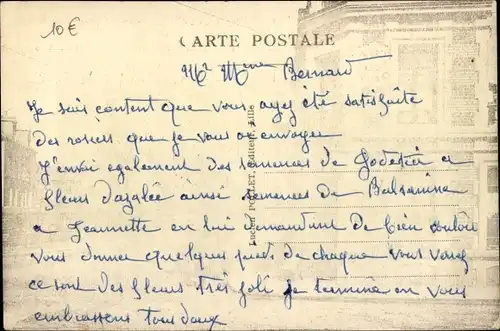 10 €
CARTE POSTALE
Mr Mme Bernard
Je suis content que vous ayez été satisfaite
des rosiers que je vous ai envoyer
J'envoi egalement des semences de Godetia a
fleurs d'azalée ainsi semences de Balsamine
a Jeannette en lui demandant de bien vouloir
vous donner quelques pieds de chaque vous verez
ce sont des fleurs très joli je termine en vous
embrassens tous deux